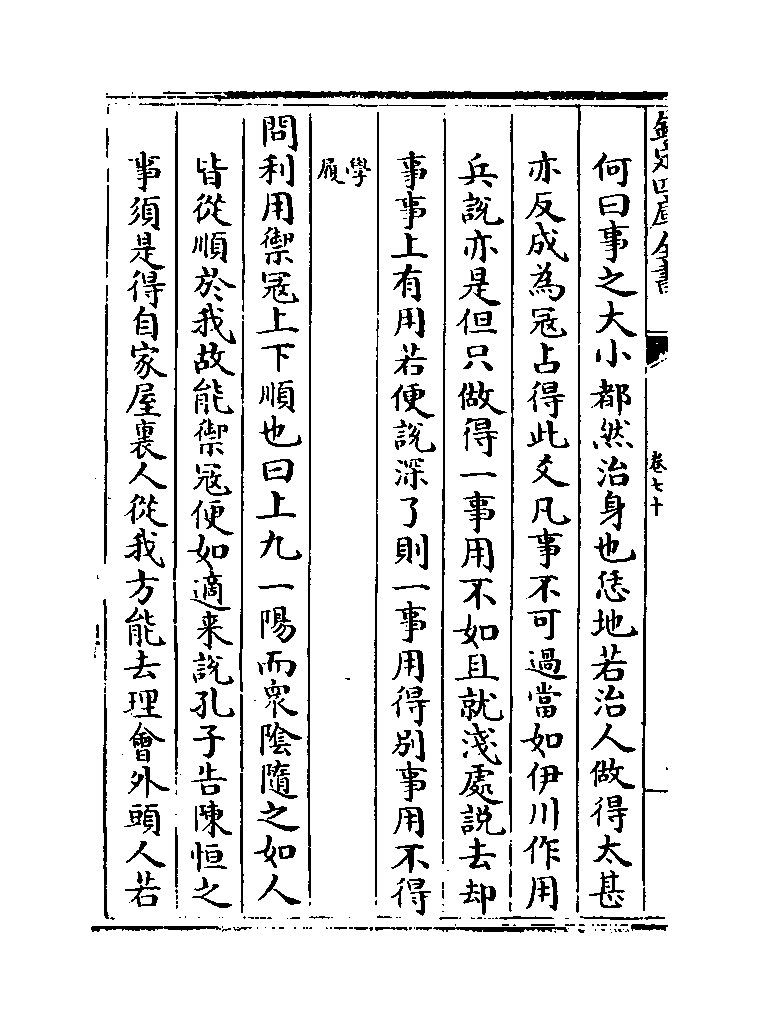 欽定四庫全書
卷七十
何曰事之大小都然治身也恁地若治人做得太甚
亦反成為冦占得此爻凡事不可過當如伊川作用
兵說亦是但只做得一事用不如且就淺處説去却
事事上有用若便說深了則一事用得别事用不得
學履
問利用禦冦上下順也曰上九一陽而衆陰隨之如人
皆從順於我故能禦冦便如適来説孔子告陳恒之
事須是得自家屋裏人從我方能去理會外頭人若